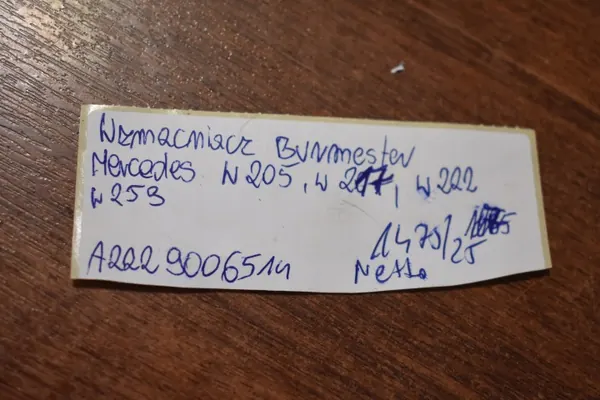 Wzmacniacz Burmester
Mercedes W205, W217, W222
W253
1475/25
A2229006514
Netto